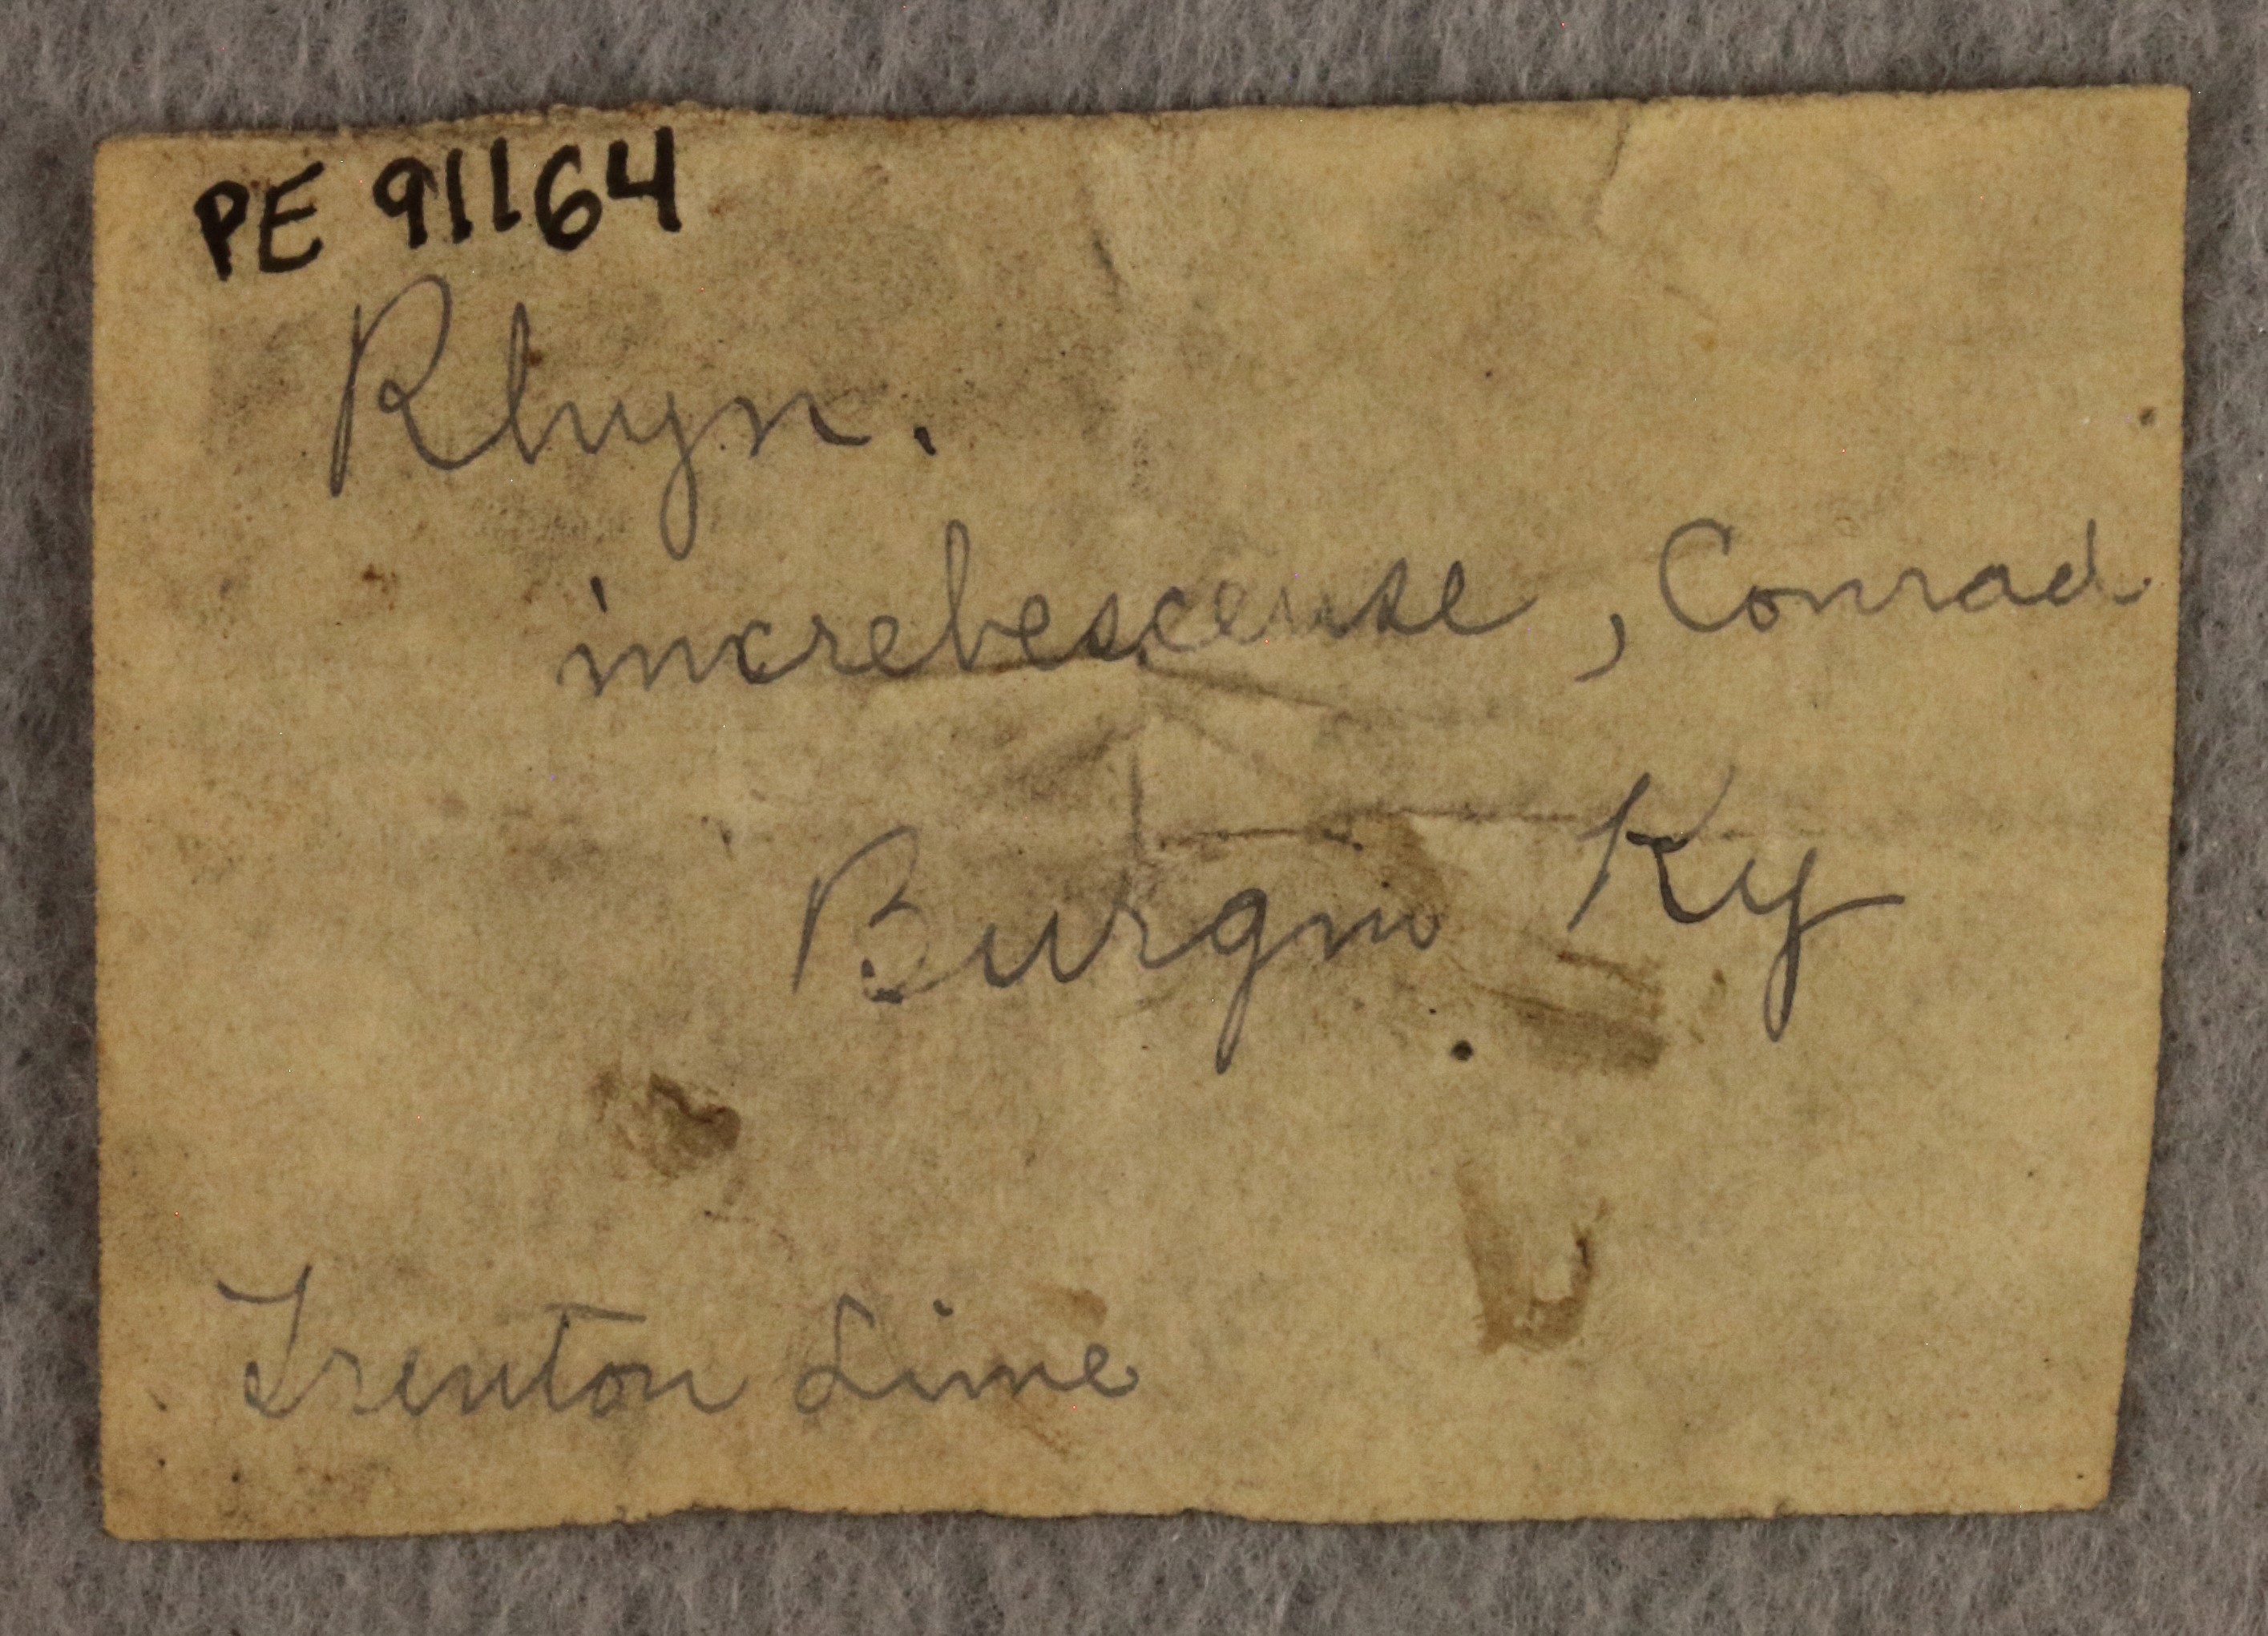 PE 91164
Rhyn.
increbescense, Conrad
Burgin Ky
Trenton Lime